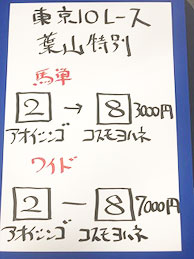 東京10レース
葉山特別
馬単
2 → 8 3000円
アオイシンゴ コスモヨハネ
ワイド
2 － 8 7000円
アオイシンゴ コスモヨハネ